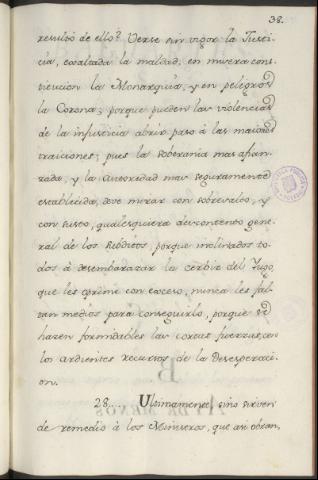 38.
resultó de ello? Verse sin vigor la Justi-
cia, exaltada la maldad, en misera cons-
titucion la Monarquia, y en peligros
la Corona; porque pueden las violencias
de la injusticia abrir paso á las maiores
traiciones; pues la soberania mas afian-
zada, y la Autoridad mas seguramente
establecida, deve mirar con sobresalto, y
con susto, qualesquiera descontento gene-
ral de los Subditos, porque inclinados to-
dos á desembarazar la cerbiz del Yugo,
que les oprime con exceso, nunca les fal-
tan medios para conseguirlo, porque se
hazen formidables las cortas fuerzas, con
los ardientes recursos de la Desesperaci-
on.
28. Ultimamente, sino sirven
de remedio á los Ministros, que asi obran,